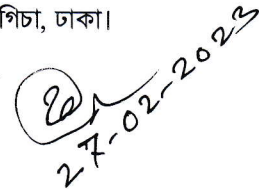 গিচা, ঢাকা।
27-02-2023